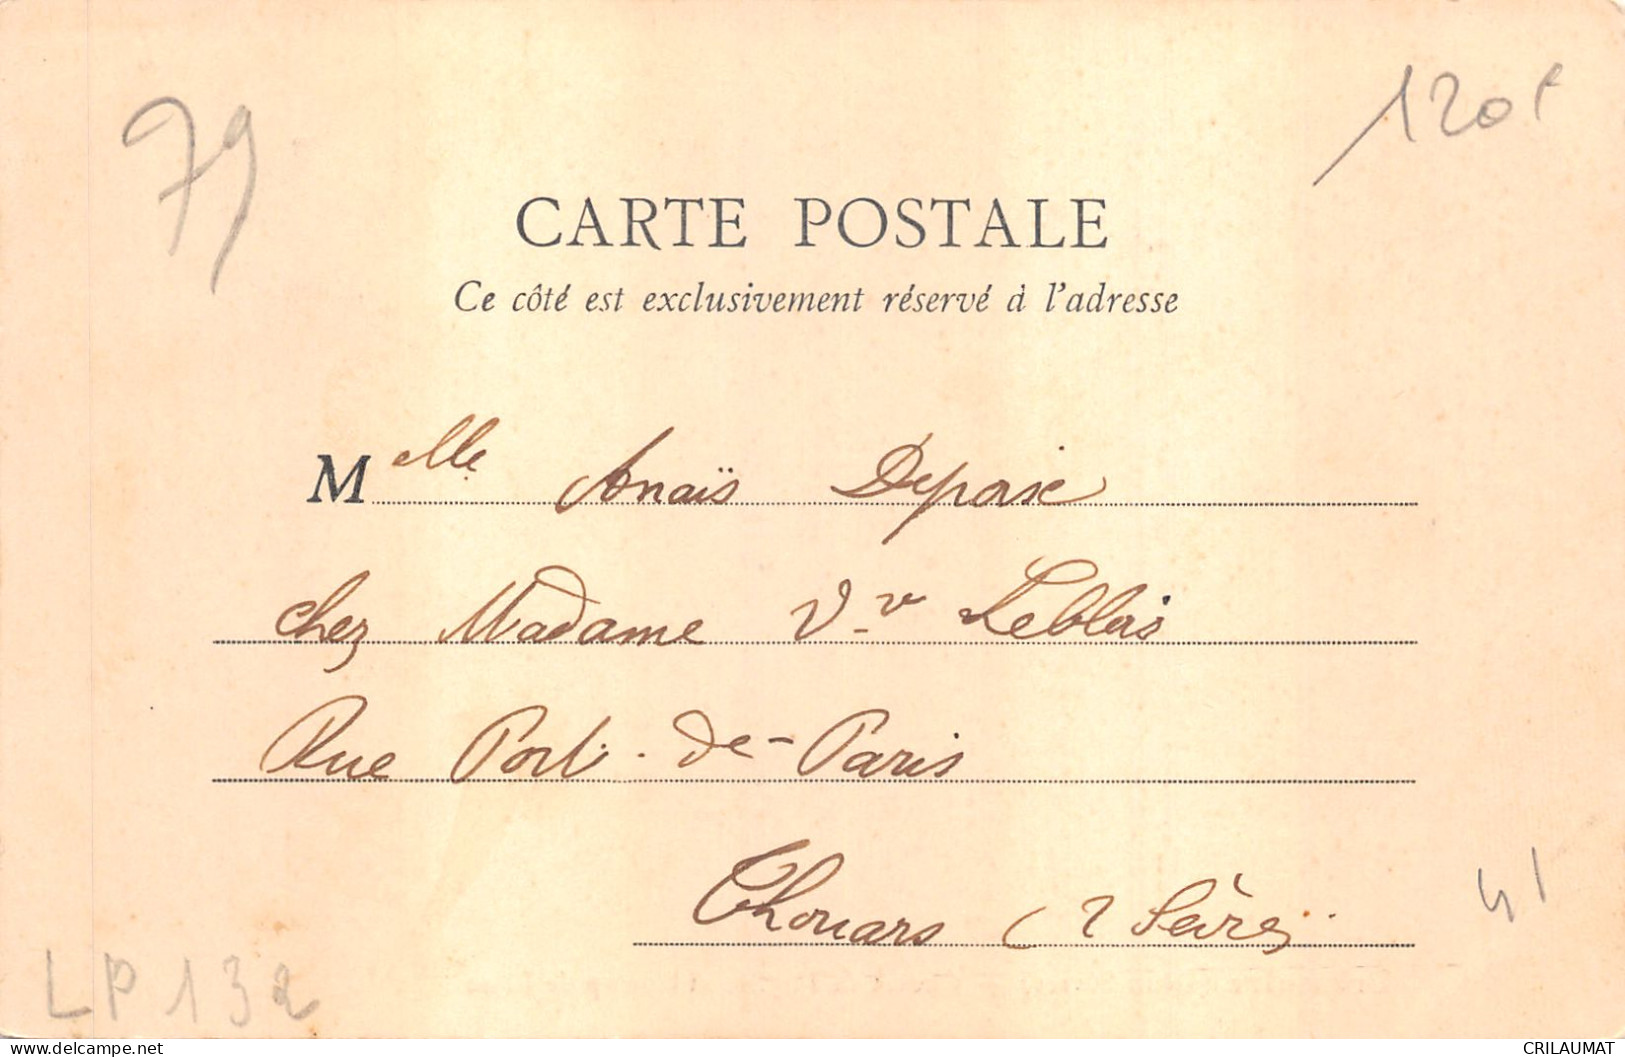 79
120f
CARTE POSTALE
Ce côté est exclusivement réservé à l'adresse
Melle Anaïs Depoix
chez Madame Vve Leblois
Rue Port-de-Paris
Thouars (2 Sèvres
41
LP 132
delcampe.net
CRILAUMAT